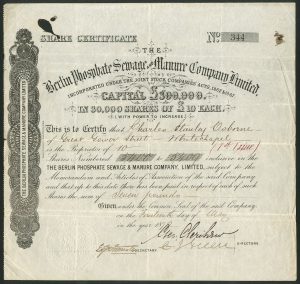 SHARE CERTIFICATE No 344
THE
Berlin Phosphate Sewage and Manure Company Limited.
INCORPORATED UNDER THE JOINT STOCK COMPANIES ACTS, 1862 & 1867
CAPITAL £300,000.
IN 30,000 SHARES OF £10 EACH.
(WITH POWER TO INCREASE)
This is to Certify that Charles Stanley Osborne
of Great Street Whitechapel
is the Proprietor of 10
Shares Numbered to inclusive in
THE BERLIN PHOSPHATE SEWAGE & MANURE COMPANY, LIMITED, subject to the
Memorandum and Articles of Association of the said Company
and that up to this date there has been paid in respect of each of such
Shares the sum of Seven Pounds
Given under the Common Seal of the said Company
on the day of
in the year of
SECRETARY
DIRECTORS